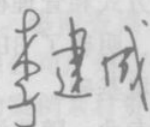 李建成